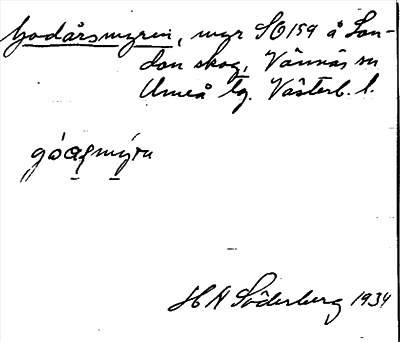 Godårsmyren, myr SO 159 å Lon-
don skog, Vännäs sn
Umeå tg. Västerb. l.
HN Söderberg 1934